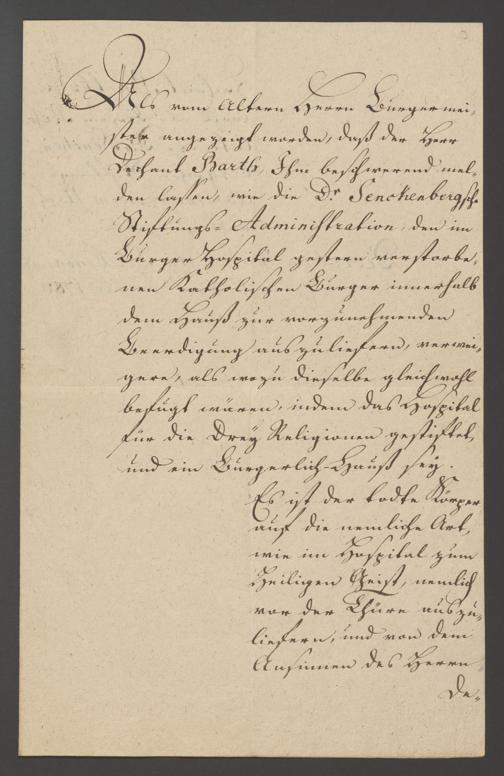 Als vom Altern Herrn Burgermei-
ster angezeigt worden, daß der Herr
Dechant Barth, Ihm beschwerend mel-
den lassen, wie die Dr. Senckenbergsche
Stiftungs-Administration, den im
Burger Hospital gestern verstorbe-
nen Katholischen Burger innerhalb
dem Hauß zur vorzunehmenden
Beerdigung auszuliefern, verwei-
gere, als wozu dieselbe gleichwohl
befugt wären, indem das Hospital
für die Drey Religionen gestiftet,
und ein Burgerlich-Hauß sey.
Es ist der todte Körper
auf die nemliche Art,
wie im Hospital zum
Heiligen Geist, nemlich
vor der Thüre auszu-
liefern, und von dem
Ansinnen des Herrn
De-